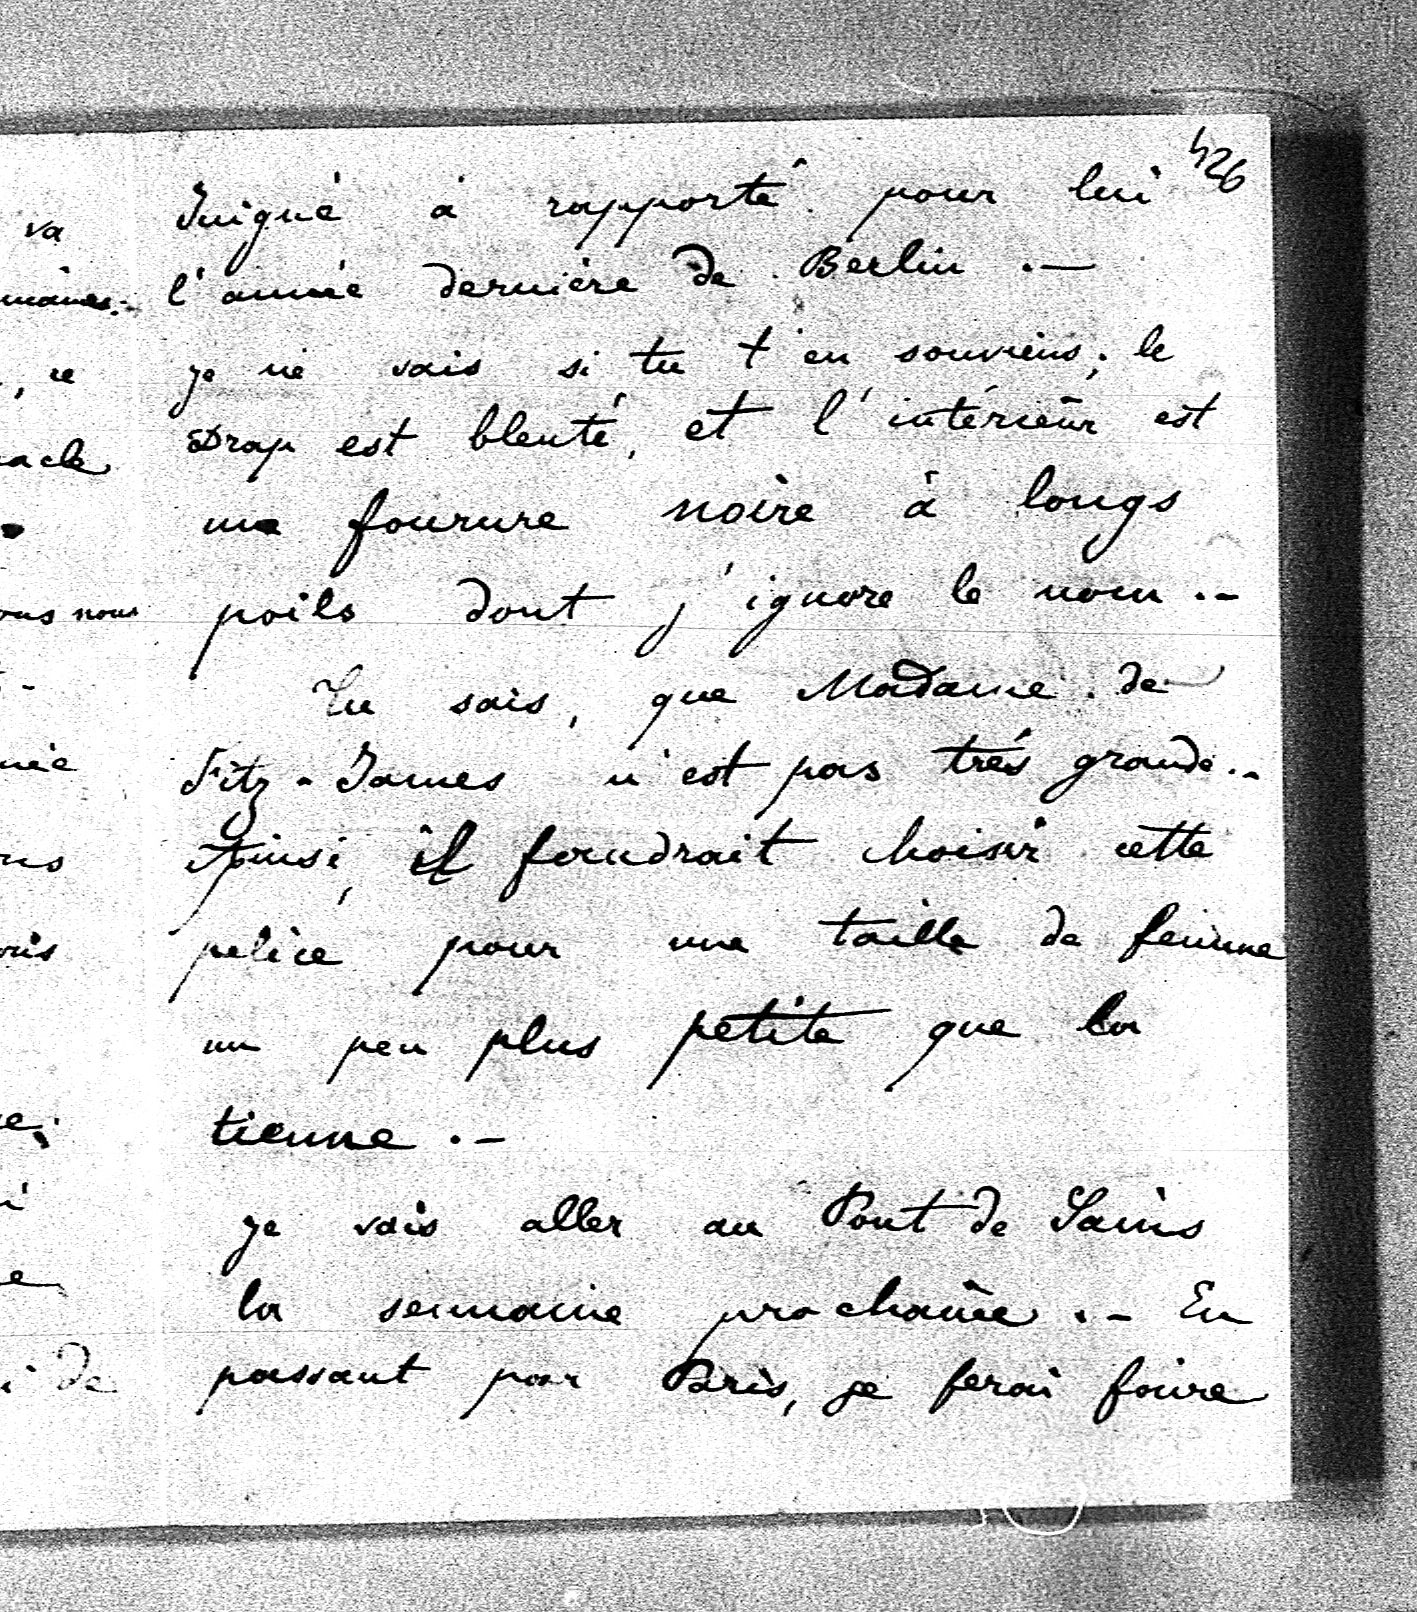 426
Juigné a rapporté pour lui
l'année dernière de Berlin .—
je ne sais si tu t'en souviens; le
Drap est bleuté, et l'intérieur est
une fourure noire à longs
poils dont j'ignore le nom .—
Tu sais, que Madame de
Fitz-James n'est pas très grande .—
Ainsi, il faudrait choisir cette
pelice pour une taille de femme
un peu plus petite que la
tienne .—
je vais aller au Pont de Sains
la semaine prochaine .— En
passant par Paris, je ferai faire
va
, ce
acle
ous nous
née
de